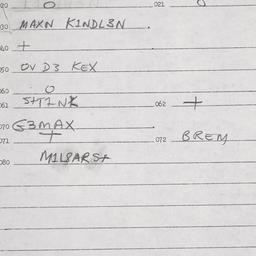 020 O 021 O
030 MAXN K1NDL3N .
040 +
050 OV D3 KEX
060 O
061 S+T1NK 062 +
070 G3MAX .
071 + 072 BREM
080 M1L8ARS+